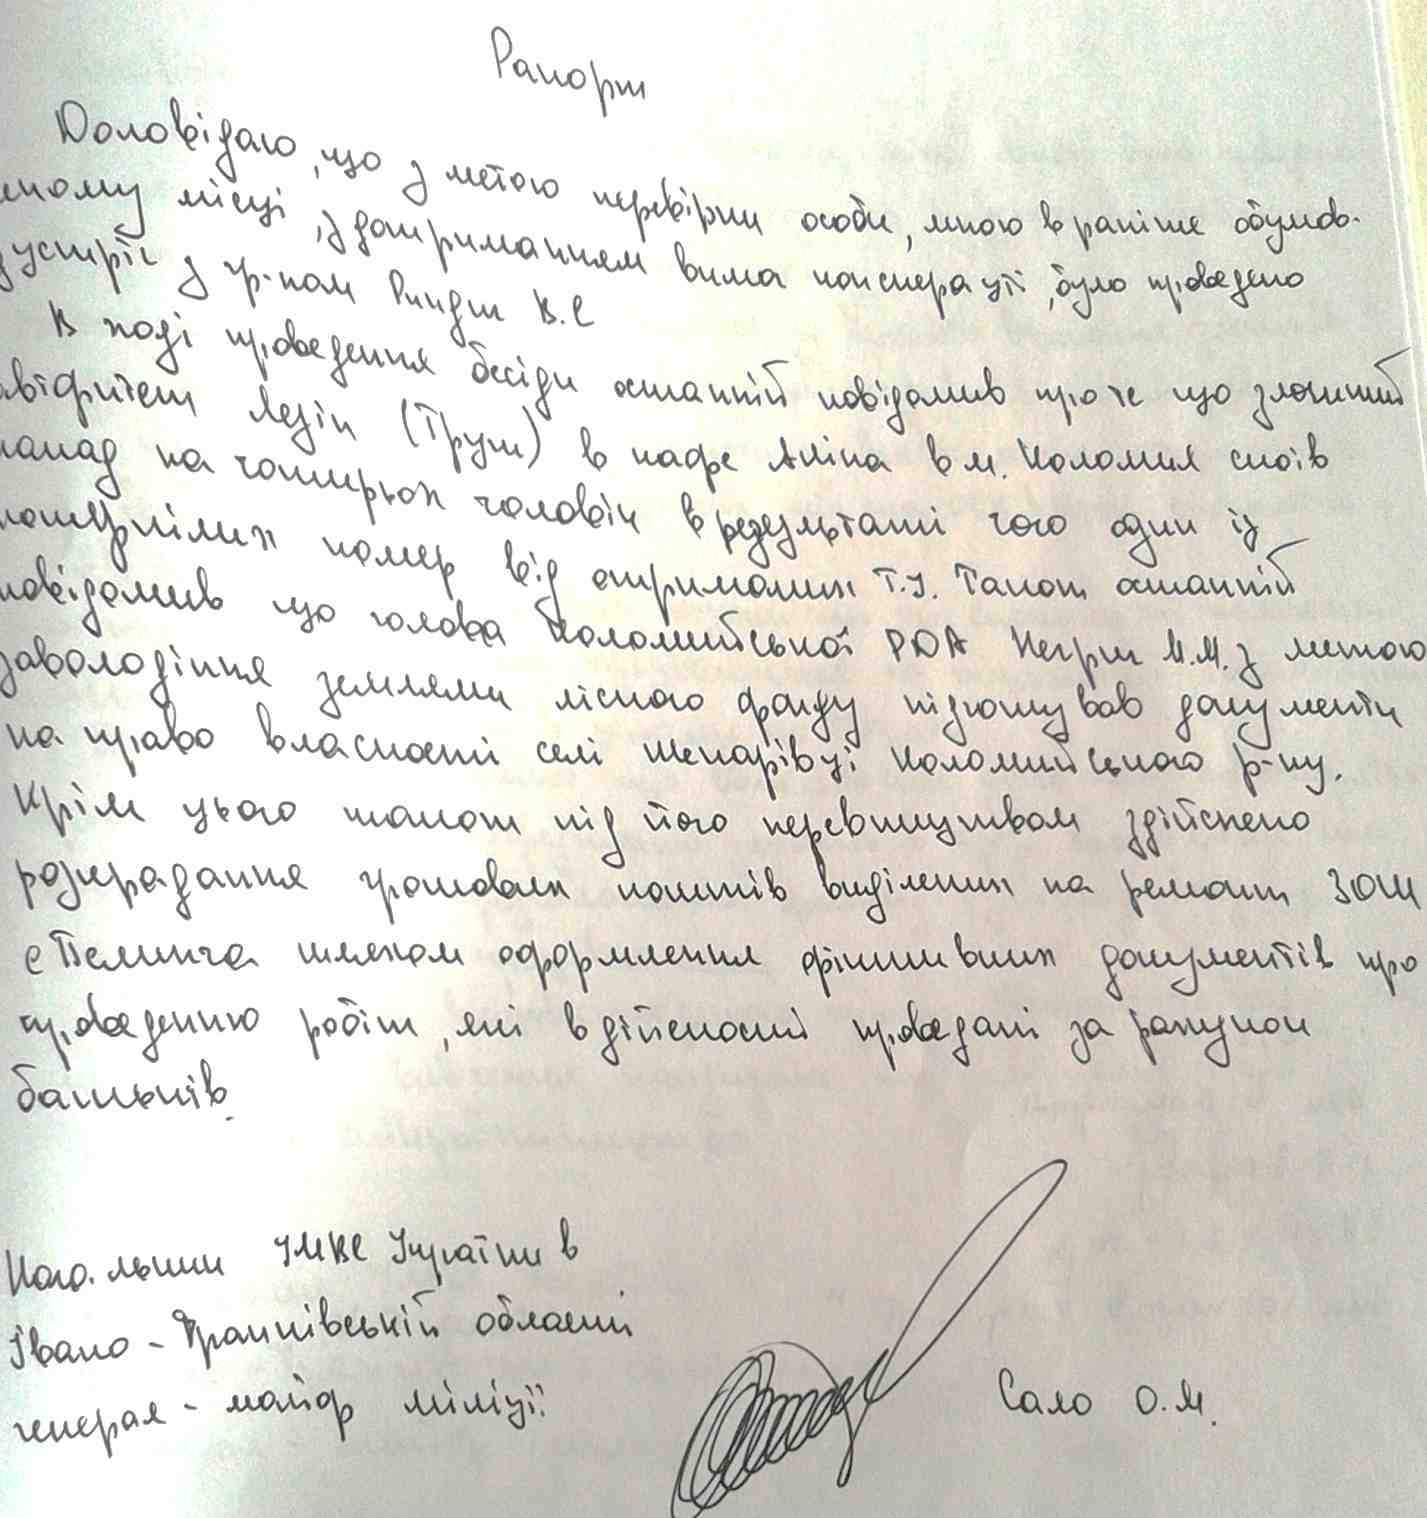 Рапорт
Доповідаю, що з метою перевірки особи, мною в раніше обумов-
леному місці, з дотриманням вимог конспірації, було проведено
зустріч з гр-ном Риндич В.С
В ході проведення бесіди останній повідомив про те що злочиний
авторитет Лезін (Труш) в кафе Аліна в м. Коломия скоїв
напад на чотирьох чоловік в результаті чого один із
потерпілих помер від отриманих Т.У. Також останній
повідомив що голова Коломийської РДА Негрич М.М. з метою
заволодіння землями лісного фонду підготував документи
на право власності селі Шепарівці Коломийського р-ну.
Крім цього також під його керівництвом здійснено
розкрадання грошових коштів виділених на ремонт ЗОШ
с Пилипи шляхом оформлення фіктивних документів про
проведеню робіт, які в дійсності проведені за рахунок
батьків.
Начальник УМВС України в
Івано-Франківській області
генерал-майор міліції
Сало О.М.